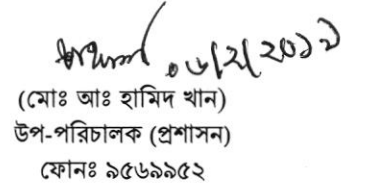 ০৬/২/২০১৯
(মোঃ আঃ হামিদ খান)
উপ-পরিচালক (প্রশাসন)
ফোনঃ ৯৫৬৯৯৫২